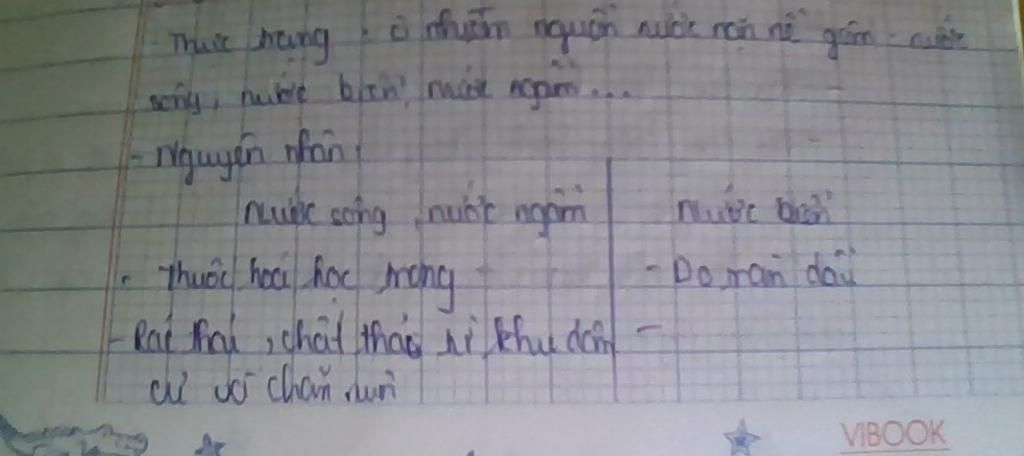 - Thực trạng: ô nhiễm nguồn nước nặng nề gồm: nước
sông, nước biển, nước ngầm...
- Nguyên nhân:
nước sông, nước ngầm
nước biển
- Thuốc hoá học trong
- Do tràn dầu
- Rác thải, chất thải từ khu dân
-
cư và chăn nuôi
VIBOOK